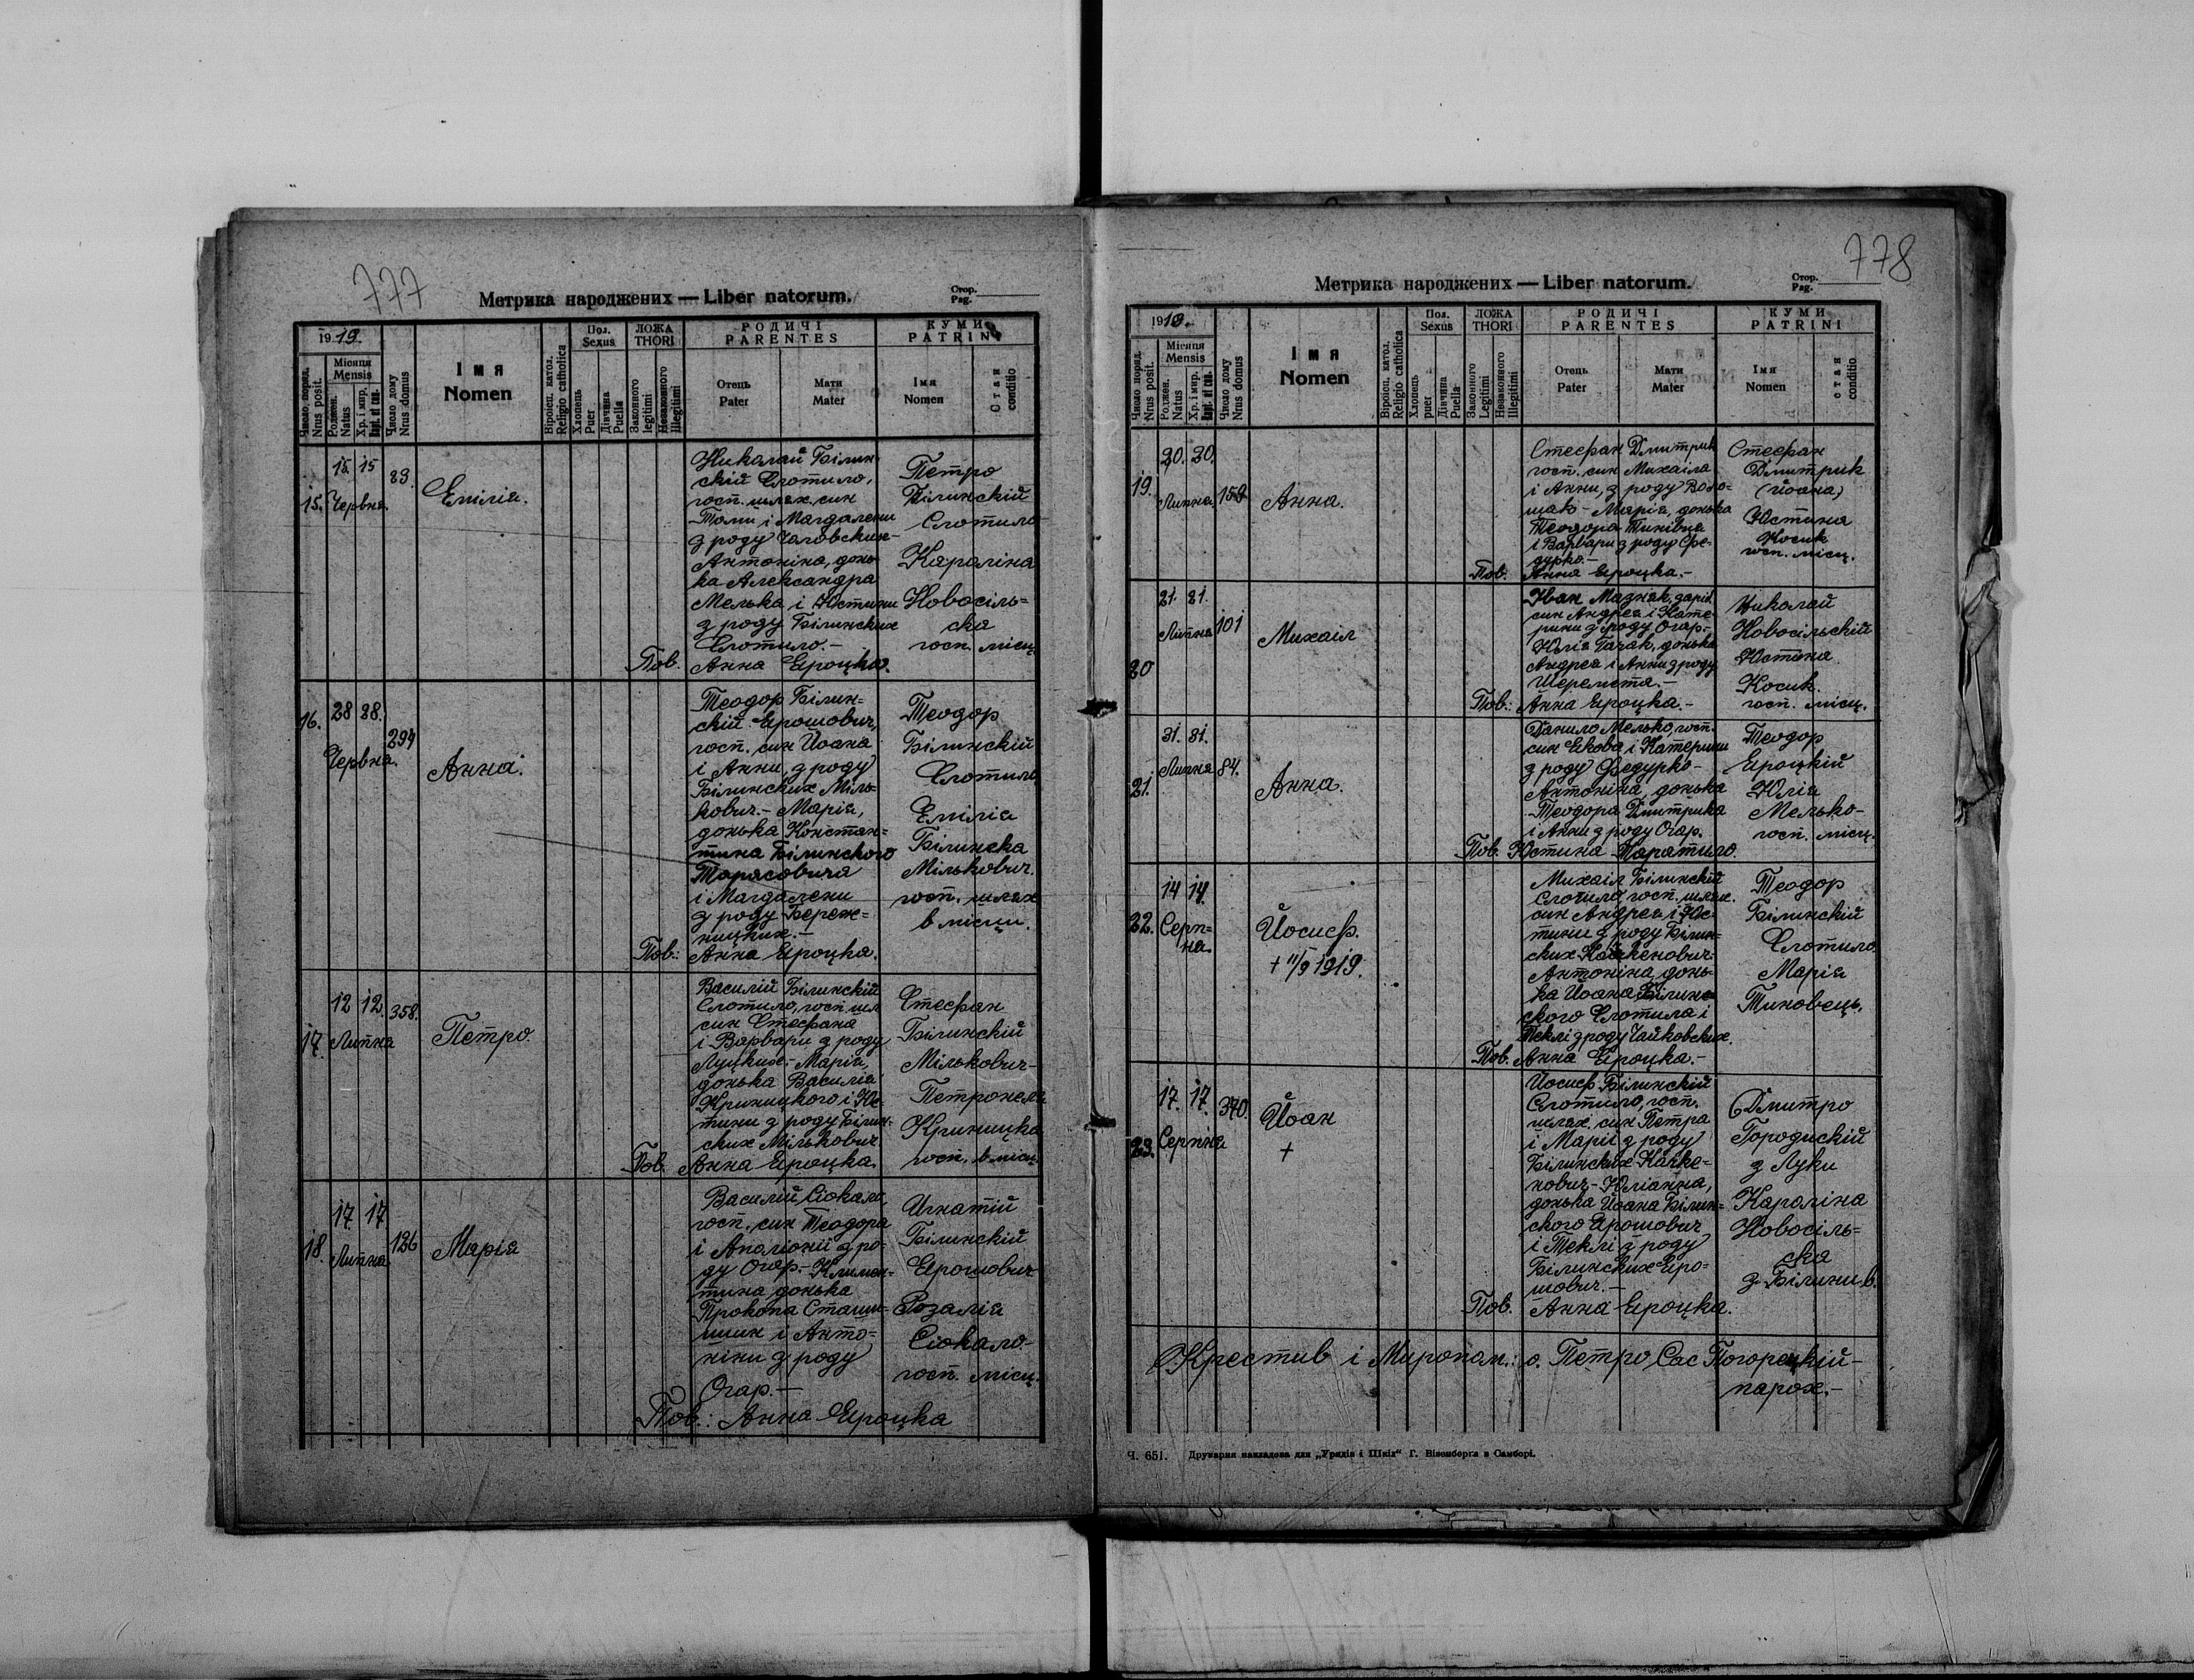 777
Метрика народжених — Liber natorum.
Стор.
Pag.
1919.
Місяця
Mensis
Число поряд.
Nrus posit.
Роджен.
Natus
Хр. і мир.
Число дому
Nrus domus
Імя
Nomen
Віроісп. катол.
Religio catholica
Пол.
Sexus
Хлопець
Puer
Дівчина
Puella
ЛОЖА
THORI
Законного
legitimi
Незаконного
Illegitimi
РОДИЧІ
PARENTES
Отець
Pater
Мати
Mater
КУМИ
PATRINI
Імя
Nomen
Стан
conditio
15. 15 15 Червня. 83.
Емілія.
Николай Білин-
скій Слотило,
госп. шлях. син
Томи і Магдалени
з роду Чаговских-
Антоніна, донь-
ка Александра
Мелька і Юстини
з роду Білинских
Слотило.-
Пов. Анна Яроцка.
Петро
Білинскій
Слотило-
Кароліна
Новосіль=
ска
госп. місц.
16. 28 28. Червня. 294
Анна.
Теодор Білин=
скій Ярошович,
госп. син Йоана
і Анни, з роду
Білинских Міль-
кович.- Марія,
донька Констан=
тина Білинского
Тарасовича
і Магдалени
з роду Береж=
ницких.-
Пов.: Анна Яроцка.
Теодор
Білинскій
Слотило
Емілія
Білинска
Мількович.
госп. шлях
в місци.
17. 12 12. Липня 358.
Петро.
Василій Білинскій
Слотило, госп. шля
син Стефана
і Варвари з роду
Луцких.- Марія,
донька Василія
Криницкого і Юс-
тини з роду Білин-
ских Мількович
Пов. Анна Яроцка.
Стефан
Білинскій
Мількович-
Петронеля
Криницка
госп. в місц.
18. 17 17 Липня 126
Марія
Василій Сіокало,
госп. син Теодора
і Аполіонії з ро-
ду Огар.- Климен=
тина донька
Прокопа Сташи-
шин і Анто=
ніни з роду
Огар.-
Пов.: Анна Яроцка
Игнатій
Білинскій
Ярошович
Розалія
Сіокало-
госп. місц.
778
Метрика народжених — Liber natorum.
Стор.
Pag.
1919.
Місяця
Mensis
Число поряд.
Nrus posit.
Роджен.
Natus
Хр. і мир.
Число дому
Nrus domus
Імя
Nomen
Віроісп. катол.
Religio catholica
Пол.
Sexus
Хлопець
puer
Дівчина
Puella
ЛОЖА
THORI
Законного
Legitimi
Незаконного
Illegitimi
РОДИЧІ
PARENTES
Отець
Pater
Мати
Mater
КУМИ
PATRINI
Імя
Nomen
стан
conditio
19. 20. 20. Липня
Анна.
Стефан Дмитрик
госп. син Михаіла
і Анни, з роду Воло=
щак - Марія, донька
Теодора Тиківця
і Варвари з роду Фе-
дурко.-
Пов. Анна Яроцка.-
Стефан
Дмитрик
(Йоана)
Юстина
Косик
госп. місц.
20 21. 21. Липня 101
Михаіл
Иван Мазняк, зарів.
син Андрея і Кате-
рини з роду Огар.-
Юлія Гачак, донька
Андрея і Анни з роду
Шеремета.-
Пов.: Анна Яроцка.-
Николай
Новосільскій
Юстина
Косик.
госп. місц.
21. 31. 31. Липня 84.
Анна.
Данило Мелько, госп.
син Якова і Катерини
з роду Федурко-
Антоніна, донька
Теодора Дмитрика
і Анни з роду Огар.
Пов. Юстина Таратило.
Теодор
Яроцкій
Юлія
Мелько-
госп. місц.
22. 14 14. Серп=
ня.
Йосиф.
+ 11/9 1919.
Михаіл Білинскій
Слотило, госп. шлях.
син Андрея і Юс-
тини з роду Білин=
ских Качкенович.
Антоніна, донь-
ка Йоана Білин=
ского Слотила і
Теклі з роду Чайковских.
Пов. Анна Яроцка.-
Теодор
Білинскій
Слотило
Марія
Тиновець.
23. 17. 17. Серпня 370.
Йоан
+
Йосиф Білинскій
Слотило, госп.
шлях. син Петра
і Марії з роду
Білинских Качке=
нович- Юліанна,
донька Йоана Білин=
ского Ярошович
і Теклі з роду
Білинских Яро-
шович.-
Пов. Анна Яроцка.
Дмитро
Городискій
з Луки
Кароліна
Новосіль=
ска
з Білини в.
Крестив і Миропом.: о. Петро Сас Погорецкій-
парох.-
Ч. 651. Друкарня накладова для „Урядів і Шкіл“ Г. Візенберга в Самборі.